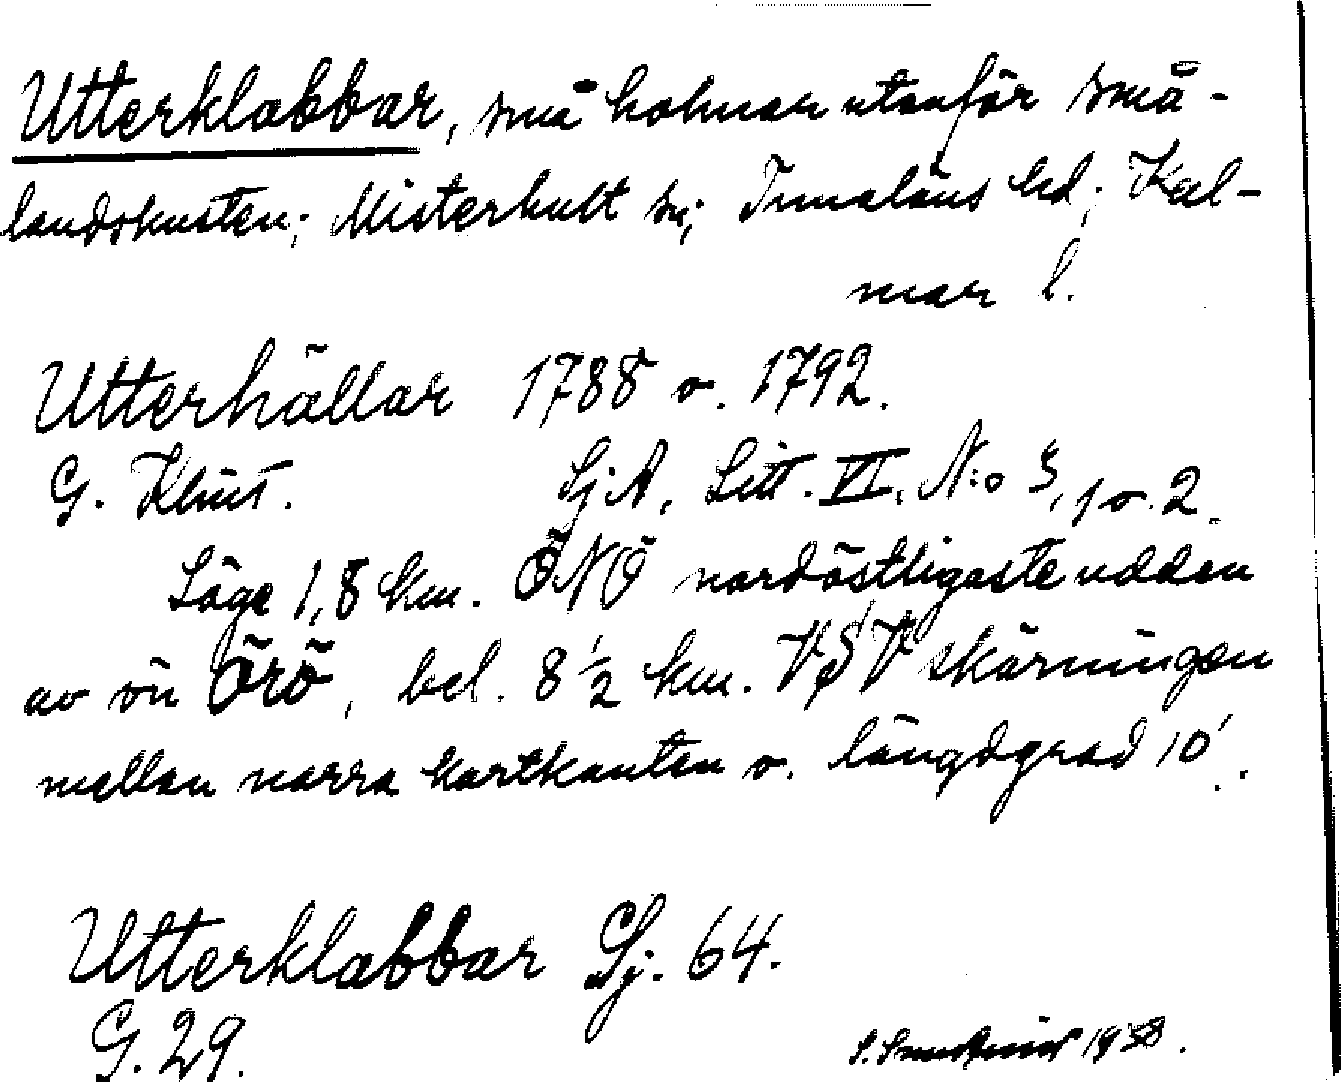 Utterklabbar, små holmar utanför små-
landskusten; Misterhult sn; Tunaläns hd; Kal-
mar l.
Utterhällar 1788 o. 1792.
G. Klint. SjA, Litt. VI. N:o 3, 1 o. 2.
Läge 1,8 km. ÖNÖ nordöstligaste udden
av ön Örö, bel. 8 1/2 km. VSV skärningen
mellan norra kartkanten o. längdgrad 10'.
Utterklabbar Sj. 64.
G. 29.
1938.